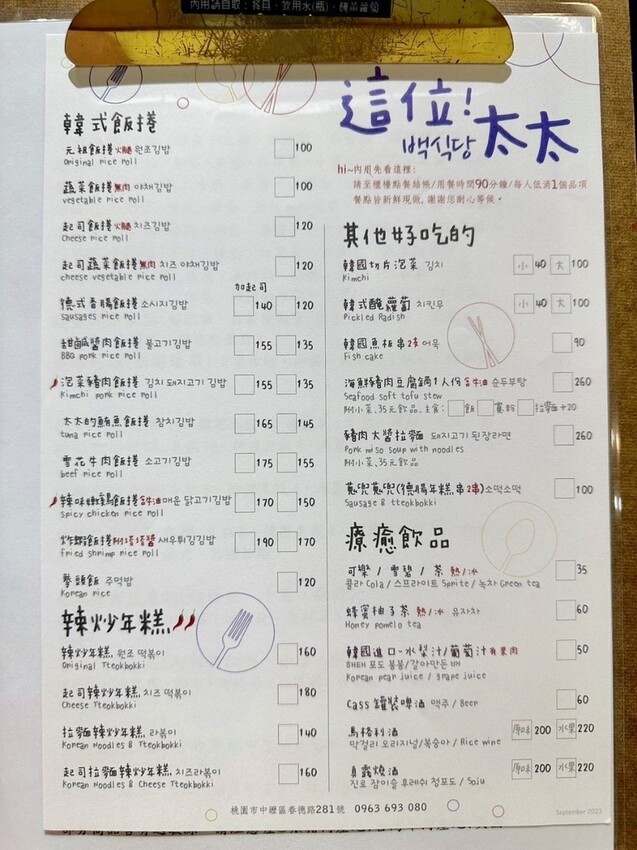 內用請自取：餐具、飲用水(瓶)、醃黃蘿蔔
這位！太太
백식당
hi~內用先看這裡：
請至櫃檯點餐結帳/用餐時間90分鐘/每人低消1個品項
餐點皆新鮮現做，謝謝您耐心等候。
韓式飯捲
元祖飯捲 火腿 원조김밥 100
Original rice roll
蔬菜飯捲 無肉 야채김밥 100
vegetable rice roll
起司飯捲 火腿 치즈김밥 120
Cheese rice roll
起司蔬菜飯捲 無肉 치즈 야채김밥 120
cheese vegetable rice roll
加起司
德式香腸飯捲 소시지김밥 140 120
Sausages rice roll
甜鹹醬肉飯捲 불고기김밥 155 135
BBQ pork rice roll
泡菜豬肉飯捲 김치 돼지고기 김밥 155 135
Kimchi pork rice roll
太太的鮪魚飯捲 참치김밥 165 145
tuna rice roll
雪花牛肉飯捲 소고기김밥 175 155
beef rice roll
辣味嫩雞飯捲 含牛油 매운 닭고기김밥 170 150
spicy chicken rice roll
炸蝦飯捲 附塔塔醬 새우튀김김밥 190 170
fried shrimp rice roll
拳頭飯 주먹밥 120
Korean rice
辣炒年糕
辣炒年糕 원조 떡볶이 160
Original Tteokbokki
起司辣炒年糕 치즈 떡볶이 180
Cheese Tteokbokki
拉麵辣炒年糕 라볶이 140
Korean Noodles & Tteokbokki
起司拉麵辣炒年糕 치즈라볶이 160
Korean Noodles & Cheese Tteokbokki
其他好吃的
韓國切片泡菜 김치 小 40 大 100
Kimchi
韓式醃蘿蔔 치킨무 小 40 大 100
Pickled Radish
韓國魚板串 2串 어묵 90
Fish cake
海鮮豬肉豆腐鍋1人份 含牛油 순두부탕 260
Seafood soft tofu stew
附小菜、35元飲品、主食： 飯 冬粉 拉麵+20
豬肉大醬拉麵 돼지고기 된장라면 260
Pork miso soup with noodles
附小菜、35元飲品
蔥兜蔥兜(德腸年糕串2串) 소떡소떡 100
Sausage & tteokbokki
療癒飲品
可樂 / 雪碧 / 茶 熱/冰 35
콜라 Cola / 스프라이트 Sprite / 녹차 Green tea
蜂蜜柚子茶 熱/冰 유자차 60
Honey pomelo tea
韓國進口-水梨汁/葡萄汁 有果肉 50
BHEH 포도 봉봉/갈아만든 배
Korean pear juice / grape juice
Cass 罐裝啤酒 맥주 / Beer 60
馬格利酒 原味 200 水果 220
막걸리 오리지널/복숭아 / Rice wine
真露燒酒 原味 200 水果 220
진로 참이슬 후레쉬 청포도 / Soju
桃園市中壢區春德路281號 0963 693 080
September 2023